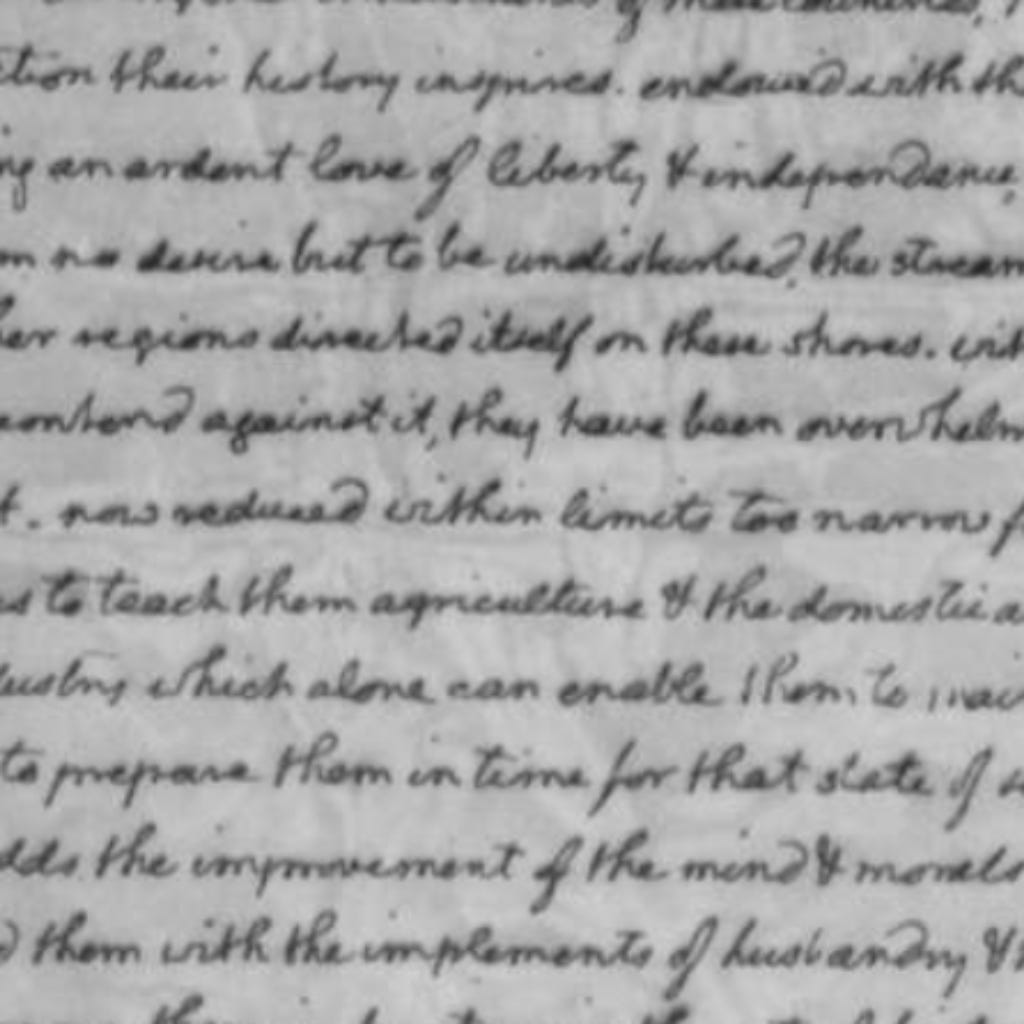 of these countries,
tion their history inspires. endowed with th
ng an ardent love of liberty & independance,
m no desire but to be undisturbed, the stream
her regions directed itself on these shores. wit
contend against it, they have been overwhelm
t. now reduced within limits too narrow f
es to teach them agriculture & the domestic a
dustry which alone can enable them to mai
to prepare them in time for that state of s
dds the improvement of the mind & morals
d them with the implements of husbandry & h